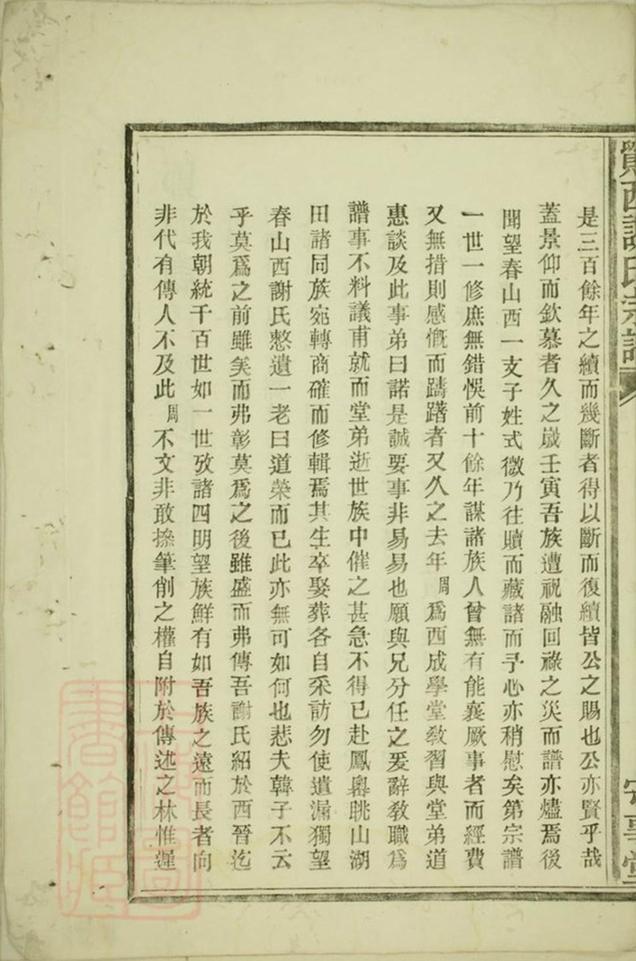 是三百餘年之續而幾斷者得以斷而復續皆公之賜也公亦賢乎哉
蓋景仰而欽慕者久之歲壬寅吾族遭祝融回祿之災而譜亦燼焉後
聞望春山西一支子姓式微乃往贖而藏諸而予心亦稍慰矣第宗譜
一世一修庶無錯悞前十餘年謀諸族人曾無有能襄厥事者而經費
又無措則感慨而躊躇者又久之去年周爲西成學堂敎習與堂弟道
惠談及此事弟曰諾是誠要事非易易也願與兄分任之爰辭敎職爲
譜事不料議甫就而堂弟逝世族中催之甚急不得已赴鳳嶴眺山湖
田諸同族宛轉商確而修輯焉其生卒娶葬各自采訪勿使遺漏獨望
春山西謝氏憖遺一老曰道榮而已此亦無可如何也悲夫韓子不云
乎莫爲之前雖美而弗彰莫爲之後雖盛而弗傳吾謝氏紹於西晉迄
於我朝統千百世如一世攷諸四明望族鮮有如吾族之遠而長者向
非代有傳人不及此周不文非敢操筆削之權自附於傳述之林惟遲
西謝氏宗譜